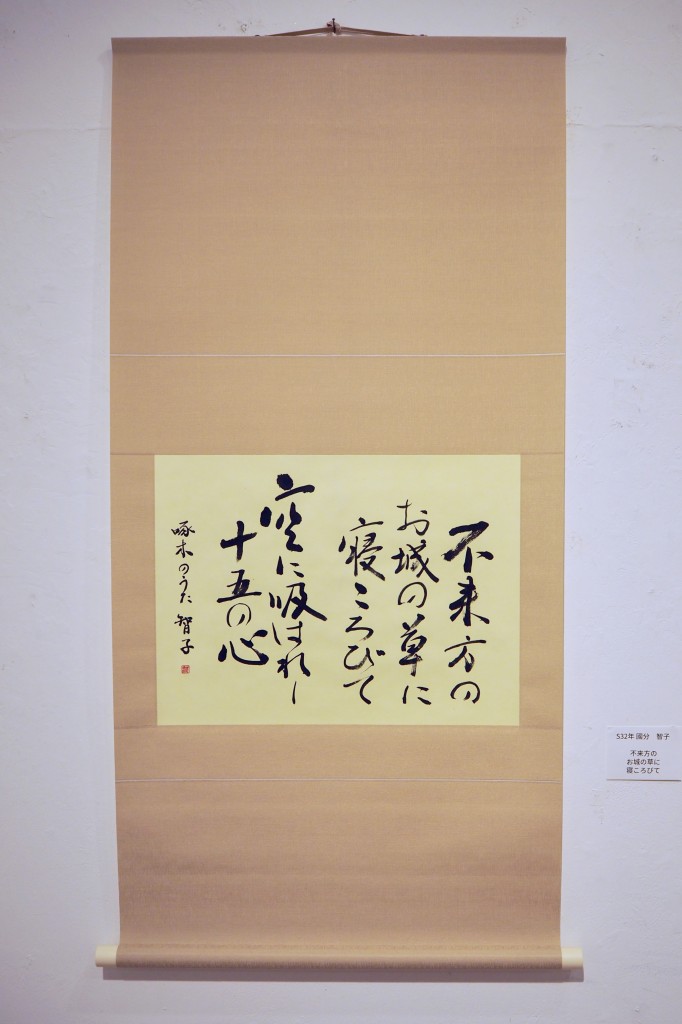 不来方の
お城の草に
寝ころびて
空に吸はれし
十五の心
啄木のうた 智子
S32年 國分　智子
不来方の
お城の草に
寝ころびて